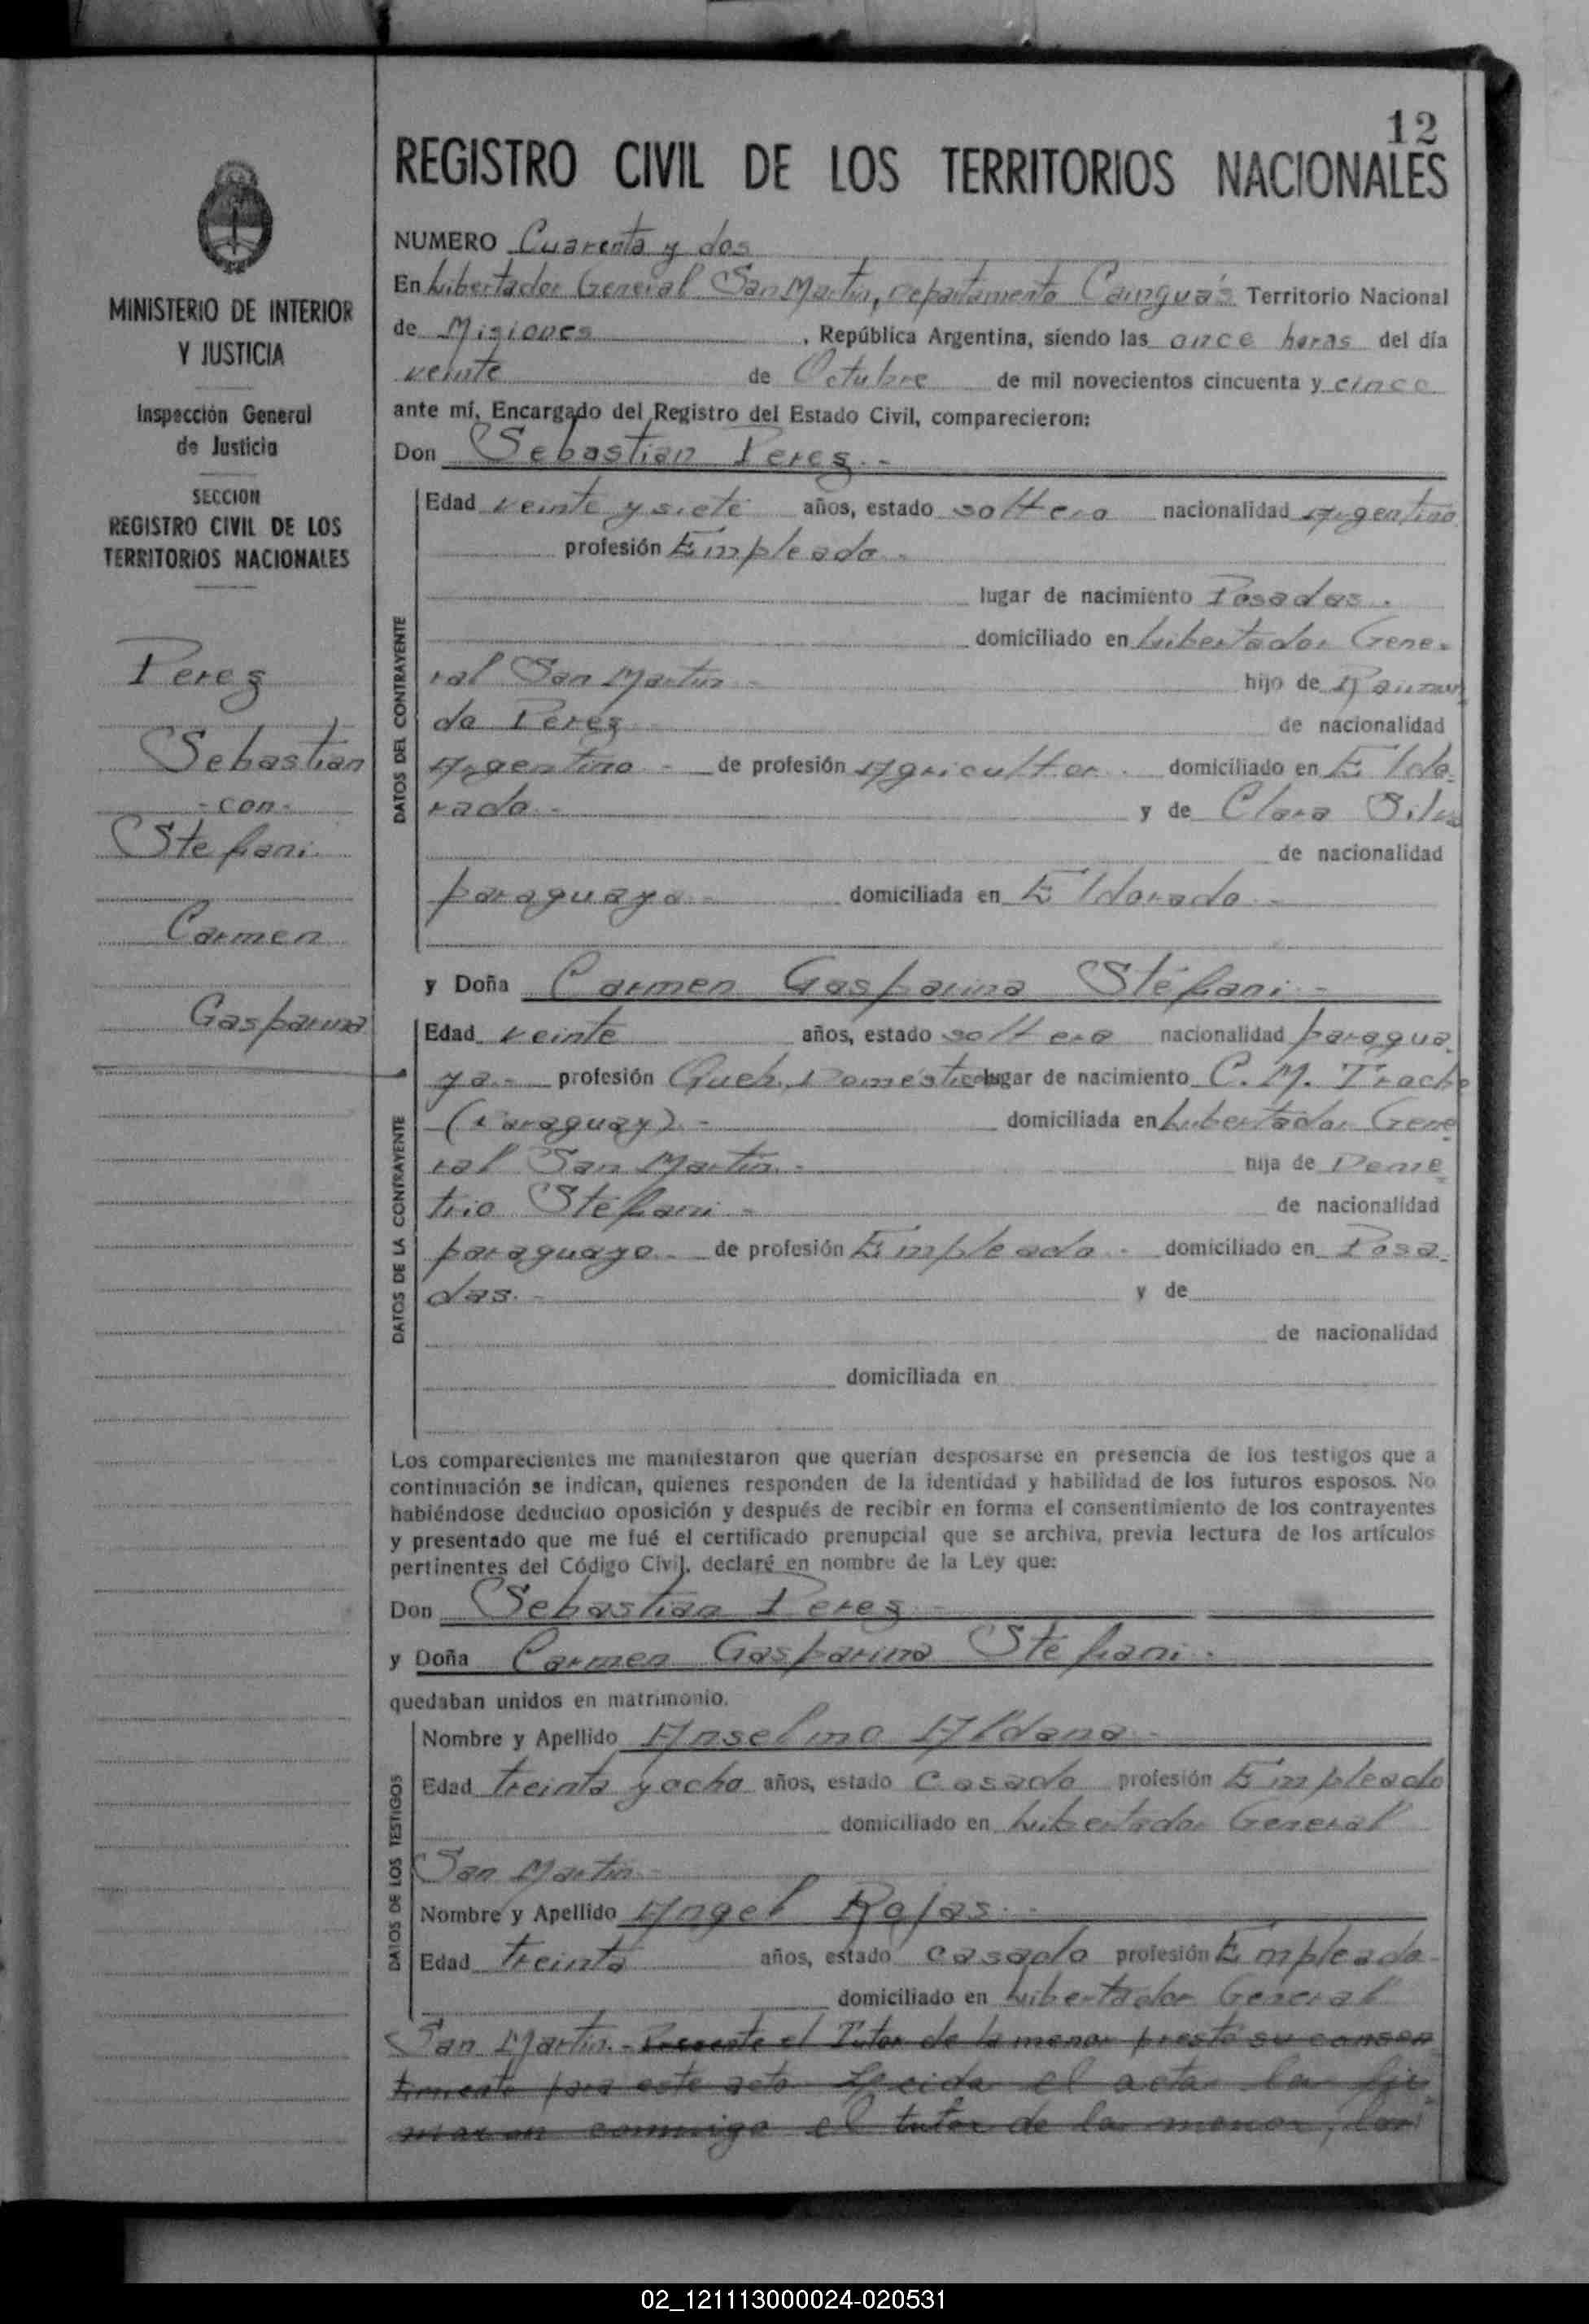 12
REGISTRO CIVIL DE LOS TERRITORIOS NACIONALES
MINISTERIO DE INTERIOR
Y JUSTICIA
Inspección General
de Justicia
SECCION
REGISTRO CIVIL DE LOS
TERRITORIOS NACIONALES
Perez
Sebastian
- con -
Stefani
Carmen
Gasparina
NUMERO Cuarenta y dos
En Libertador General San Martin, departamento Cainguás Territorio Nacional
de Misiones , República Argentina, siendo las once horas del día
veinte de Octubre de mil novecientos cincuenta y cinco
ante mí, Encargado del Registro del Estado Civil, comparecieron:
Don Sebastian Perez.-
DATOS DEL CONTRAYENTE
Edad veinte y siete años, estado soltero nacionalidad Argentino
profesión Empleado -
lugar de nacimiento Posadas.
domiciliado en Libertador Gene-
ral San Martin - hijo de Raimun
do Perez de nacionalidad
Argentino - de profesión Agricultor. domiciliado en Eldo-
rado - y de Clara Silva
de nacionalidad
paraguaya - domiciliada en Eldorado -
y Doña Carmen Gasparina Stéfani -
DATOS DE LA CONTRAYENTE
Edad veinte años, estado soltera nacionalidad paragua-
ya - profesión Queh. Domésticos lugar de nacimiento C. M. Troche
(Paraguay) - domiciliada en Libertador Gene
ral San Martin - hija de Deme
trio Stéfani - de nacionalidad
paraguayo - de profesión Empleado - domiciliado en Posa-
das. - y de
de nacionalidad
domiciliada en
Los comparecientes me manifestaron que querían desposarse en presencia de los testigos que a
continuación se indican, quienes responden de la identidad y habilidad de los futuros esposos. No
habiéndose deducido oposición y después de recibir en forma el consentimiento de los contrayentes
y presentado que me fué el certificado prenupcial que se archiva, previa lectura de los artículos
pertinentes del Código Civil, declaré en nombre de la Ley que:
Don Sebastian Perez -
y Doña Carmen Gasparina Stéfani.
quedaban unidos en matrimonio.
DATOS DE LOS TESTIGOS
Nombre y Apellido Anselmo Aldana -
Edad treinta y ocho años, estado Casado profesión Empleado
domiciliado en Libertador General
San Martin -
Nombre y Apellido Angel Rojas. -
Edad treinta años, estado casado profesión Empleado
domiciliado en Libertador General
San Martin. - Presente el Tutor de la menor prestó su consen
timiento para este acto Leida el acta la fir
maron conmigo el tutor de la menor, los
02_121113000024-020531